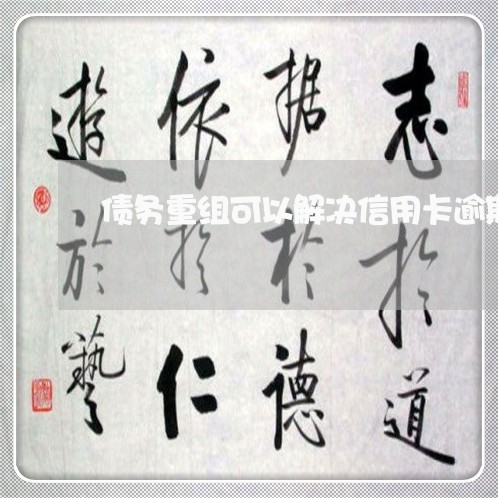 志於道
据於德
依於仁
遊於藝
债务重组可以解决信用卡逾